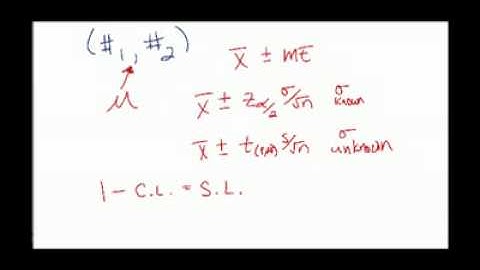 (#₁, #₂)
μ
x̄ ± mE
x̄ ± z_α/2 σ/√n σ known
x̄ ± t σ/√n σ unknown
1 - C.L. = S.L.